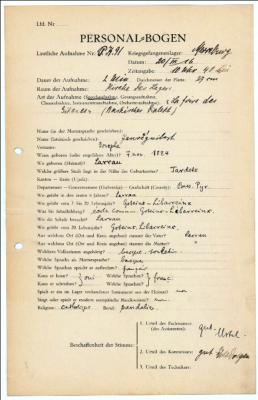 Lfd. Nr.
PERSONAL-BOGEN
Lautliche Aufnahme Nr.: P.K. 91 Kriegsgefangenenlager:
Datum: 20/III 16
Zeitangabe: 10 Uhr 41
Dauer der Aufnahme: 2 Min Durchmesser der Platte: 27 cm
Raum der Aufnahme: Kirche des Lagers
Art der Aufnahme (Sprechaufnahme, Gesangsaufnahme,
Choraufnahme, Instrumentenaufnahme, Orchesteraufnahme): La foire des
Name (in der Muttersprache geschrieben):
Name (lateinisch geschrieben):
Vorname: Joseph
Wann geboren (oder ungefähres Alter)? 7 nov. 1884
Wo geboren (Heimat)? Larrau
Welche größere Stadt liegt in der Nähe des Geburtsortes? Tardets
Kanton — Kreis (Ujedz):
Departement — Gouvernement (Gubernija) — Grafschaft (County): Bass. Pyr.
Wo gelebt in den ersten 6 Jahren? Larrau
Wo gelebt vom 7 bis 20 Lebensjahr? Gotein-Libarrenx
Was für Schulbildung? école comm. Gotein-Libarrenx
Wo die Schule besucht? Larrau
Wo gelebt vom 20. Lebensjahr? Gotein-Libarrenx
Aus welchem Ort (Ort und Kreis angeben) stammt der Vater? Larrau
Aus welchem Ort (Ort und Kreis angeben) stammt die Mutter?
Welchem Volksstamm angehörig?
Welche Sprache als Muttersprache? basque
Welche Sprachen spricht er außerdem? français
Kann er lesen? oui Welche Sprachen? franc.
Kann er schreiben? oui Welche Sprachen?
Spielt er ein im Lager vorhandenes Instrument aus der Heimat? non
Singt oder spielt er moderne europäische Musikweisen? non
Religion: catholique Beruf:
Beschaffenheit der Stimme:
1. Urteil des Fachmannes: gut
(des Assistenten):
2. Urteil des Kommissars: gut
3. Urteil des Technikers: